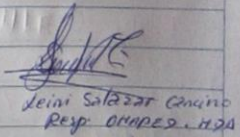 Leini Salazar Cancino
Resp. OMAPED - MDA